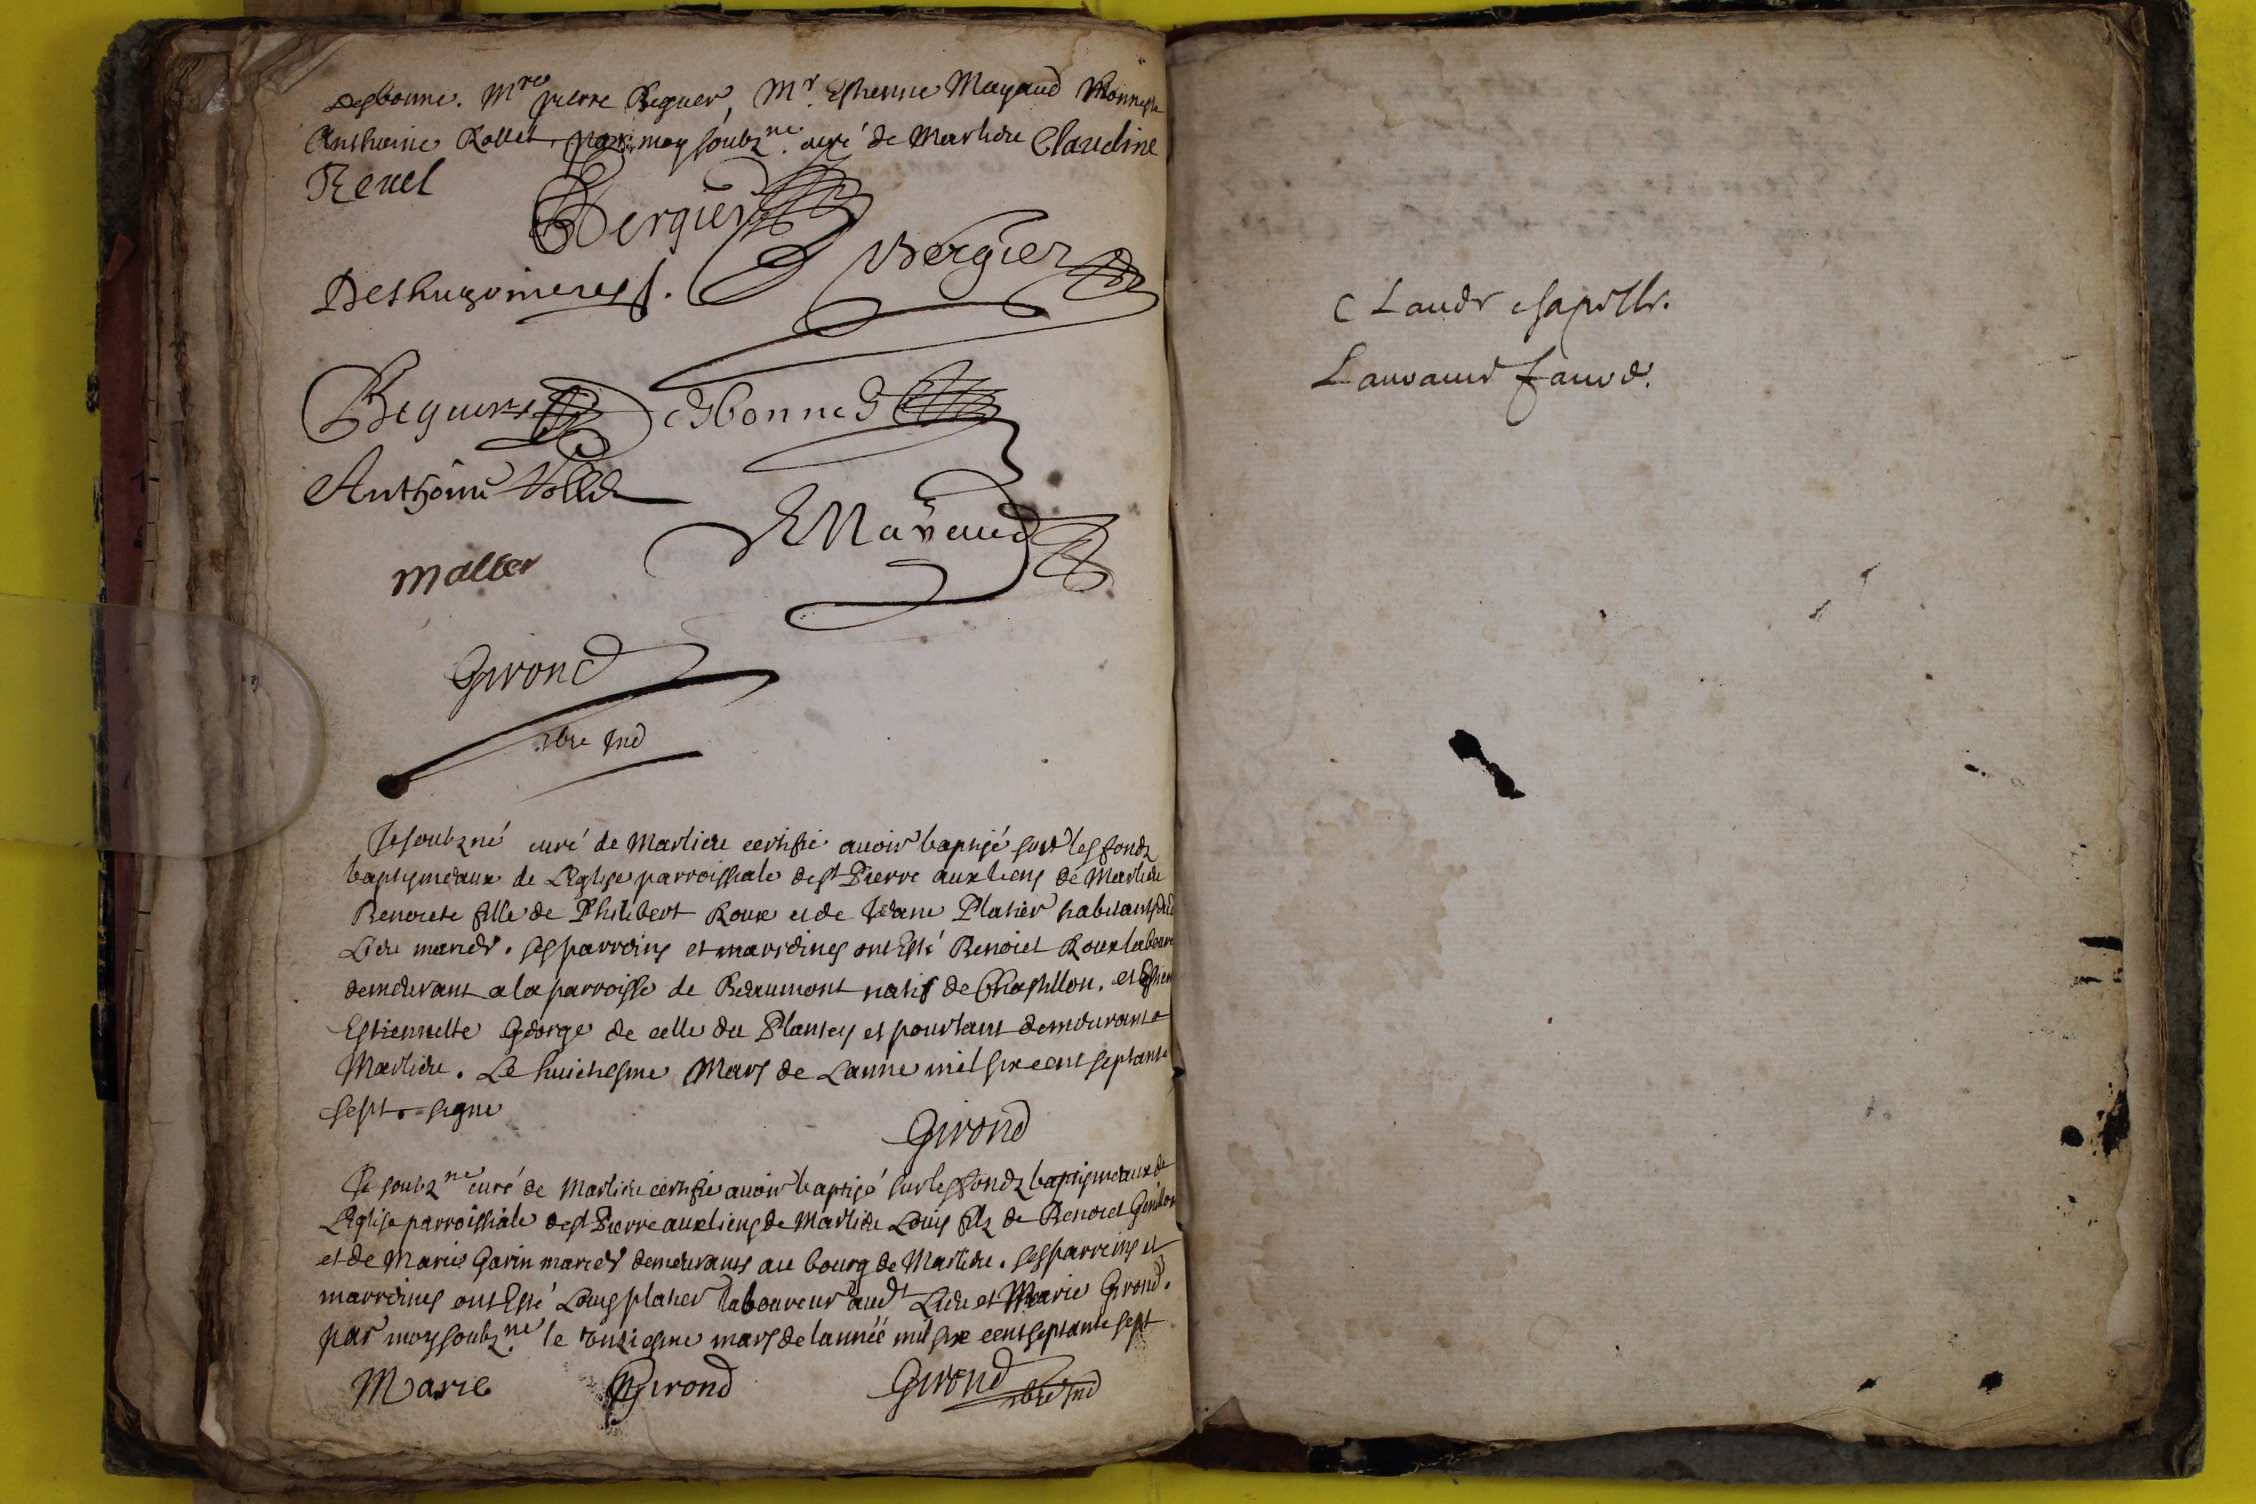 Desbonne. Mre pierre Beguer, Mr. Esthienne Mayaud
Anthoine Rollet. par moy soubzne. curé de Marlieu Claudine
Revel
Bergier
Bergier
Deshuzonieres
Beguer
desbonnes
Anthoine Rollet
E Mayaud
mallet
Girond
Je soubzné curé de Marlieu certifie avoir baptizé sur les fondz
baptismeaux de L'Eglise parroissiale de st Pierre aux liens de Marlieu
Benoiete fille de Philibert Roux et de Jeane Platier habitants dud
Lieu mariez. ses parreins et marreines ont Esté Benoiet Roux laboure
demeurant a la parroisse de Beaumont natif de Chastillon. et
Estiennette George de celle du Plantey et pourtant demeurant a
Marlieu. Le huictiesme Mars de L'anne mil six cent septante
sept. signe
Girond
Je soubzne curé de Marlieu certifie avoir baptizé sur les fondz baptismeaux de
L'Eglise parroissiale de st Pierre aux liens de Marlieu Louis filz de Benoiet
et de Marie Garin mariez demeurants au bourg de Marlieu. ses parreins et
marreines ont Esté Louis platier laboureur aud Lieu et Marie Girond.
par moy soubzne. le onziesme mars de lannéé mil six cent septante sept
Marie Girond Girond
Claude chapelle.